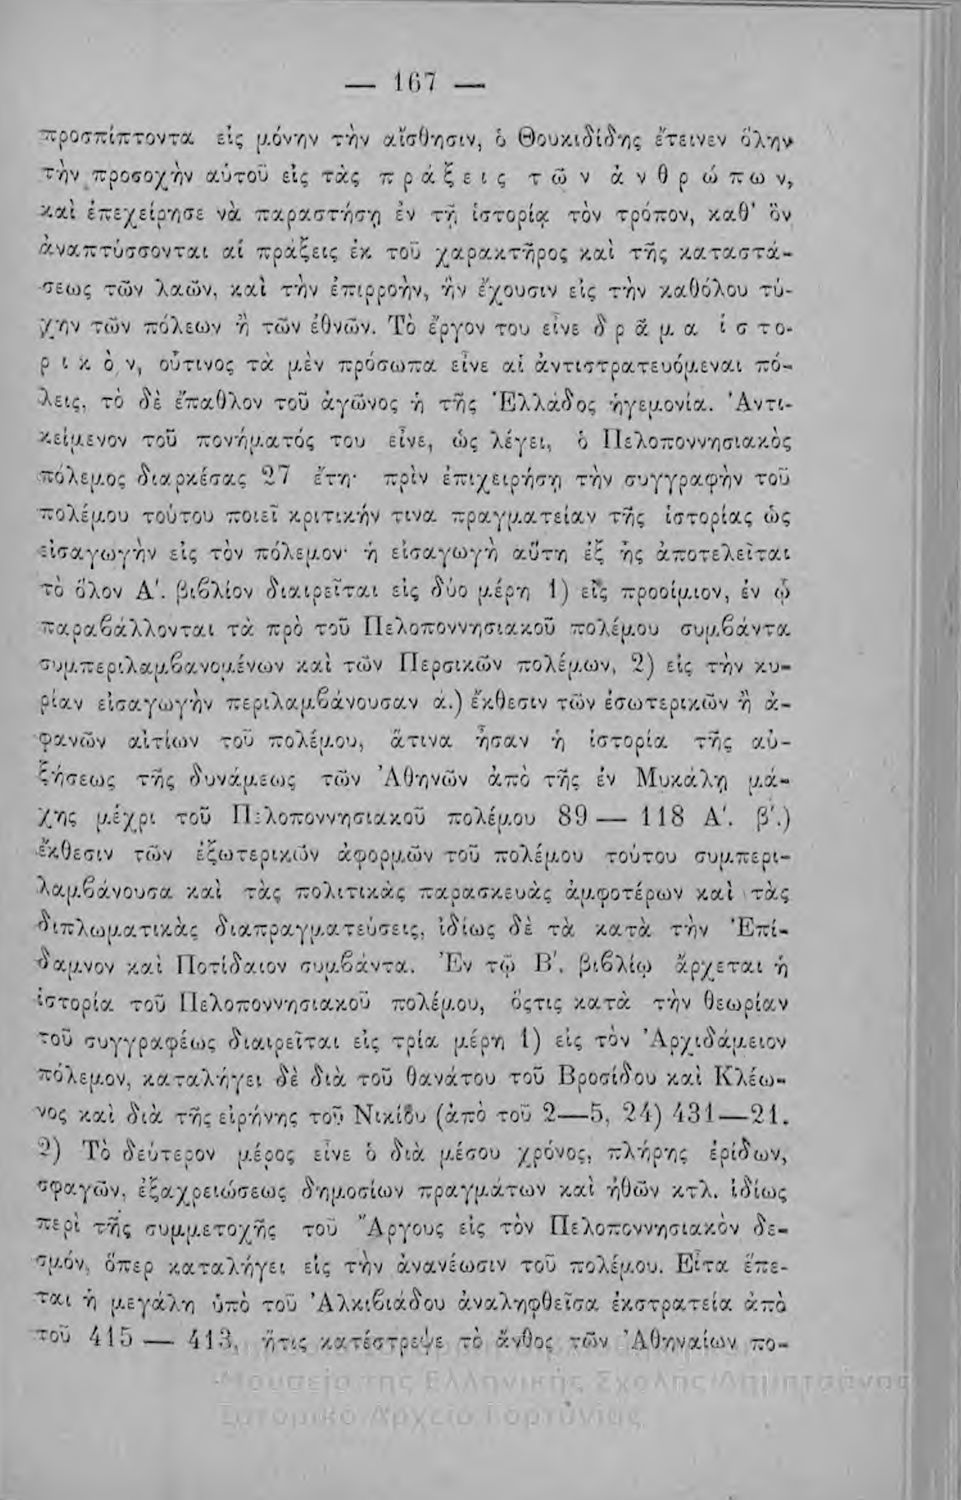 — 167 —
προσπίπτοντα εἰς μόνην τὴν αἴσθησιν, ὁ Θουκιδίδης ἔτεινεν ὅλην
τὴν προσοχὴν αὐτοῦ εἰς τὰς π ρ ά ξ ε ι ς τ ῶ ν ἀ ν θ ρ ώ π ω ν,
καὶ ἐπεχείρησε νὰ παραστήσῃ ἐν τῇ ἱστορίᾳ τὸν τρόπον, καθ' ὃν
ἀναπτύσσονται αἱ πράξεις ἐκ τοῦ χαρακτῆρος καὶ τῆς καταστά-
σεως τῶν λαῶν, καὶ τὴν ἐπιρροὴν, ἣν ἔχουσιν εἰς τὴν καθόλου τύ-
χην τῶν πόλεων ἢ τῶν ἐθνῶν. Τὸ ἔργον του εἶνε δ ρ ᾶ μ α ἱ σ τ ο-
ρ ι κ ὸ ν, οὗτινος τὰ μὲν πρόσωπα εἶνε αἱ ἀντιστρατευόμεναι πό-
λεις, τὸ δὲ ἔπαθλον τοῦ ἀγῶνος ἡ τῆς Ἑλλάδος ἡγεμονία. Ἀντι-
κείμενον τοῦ πονήματός του εἶνε, ὡς λέγει, ὁ Πελοποννησιακὸς
πόλεμος διαρκέσας 27 ἔτη· πρὶν ἐπιχειρήσῃ τὴν συγγραφὴν τοῦ
πολέμου τούτου ποιεῖ κριτικήν τινα πραγματείαν τῆς ἱστορίας ὡς
εἰσαγωγὴν εἰς τὸν πόλεμον· ἡ εἰσαγωγὴ αὕτη ἐξ ἧς ἀποτελεῖται
τὸ ὅλον Α'. βιβλίον διαιρεῖται εἰς δύο μέρη 1) εἰς προοίμιον, ἐν ᾧ
παραβάλλονται τὰ πρὸ τοῦ Πελοποννησιακοῦ πολέμου συμβάντα
συμπεριλαμβανομένων καὶ τῶν Περσικῶν πολέμων, 2) εἰς τὴν κυ-
ρίαν εἰσαγωγὴν περιλαμβάνουσαν ά.) ἔκθεσιν τῶν ἐσωτερικῶν ἢ ἀ-
φανῶν αἰτίων τοῦ πολέμου, ἅτινα ἦσαν ἡ ἱστορία τῆς αὐ-
ξήσεως τῆς δυνάμεως τῶν Ἀθηνῶν ἀπὸ τῆς ἐν Μυκάλῃ μά-
χης μέχρι τοῦ Πελοποννησιακοῦ πολέμου 89 — 118 Α'. β'.)
ἔκθεσιν τῶν ἐξωτερικῶν ἀφορμῶν τοῦ πολέμου τούτου συμπερι-
λαμβάνουσα καὶ τὰς πολιτικὰς παρασκευὰς ἀμφοτέρων καὶ τὰς
διπλωματικὰς διαπραγματεύσεις, ἰδίως δὲ τὰ κατὰ τὴν Ἐπί-
δαμνον καὶ Ποτίδαιον συμβάντα. Ἐν τῷ Β'. βιβλίῳ ἄρχεται ἡ
ἱστορία τοῦ Πελοποννησιακοῦ πολέμου, ὅςτις κατὰ τὴν θεωρίαν
τοῦ συγγραφέως διαιρεῖται εἰς τρία μέρη 1) εἰς τὸν Ἀρχιδάμειον
πόλεμον, καταλήγει δὲ διὰ τοῦ θανάτου τοῦ Βροσίδου καὶ Κλέω-
νος καὶ διὰ τῆς εἰρήνης τοῦ Νικίου (ἀπὸ τοῦ 2—5, 24) 431—21.
2) Τὸ δεύτερον μέρος εἶνε ὁ διὰ μέσου χρόνος, πλήρης ἐρίδων,
σφαγῶν, ἐξαχρειώσεως δημοσίων πραγμάτων καὶ ἠθῶν κτλ. ἰδίως
περὶ τῆς συμμετοχῆς τοῦ Ἄργους εἰς τὸν Πελοποννησιακὸν δε-
σμόν, ὅπερ καταλήγει εἰς τὴν ἀνανέωσιν τοῦ πολέμου. Εἶτα ἕπε-
ται ἡ μεγάλη ὑπὸ τοῦ Ἀλκιβιάδου ἀναληφθεῖσα ἐκστρατεία ἀπὸ
τοῦ 415 — 413, ἥτις κατέστρεψε τὸ ἄνθος τῶν Ἀθηναίων πο-
Μουσείο της Ελληνικής Σχολής Δημητσάνας
Ιστορικό Αρχείο Γορτυνίας